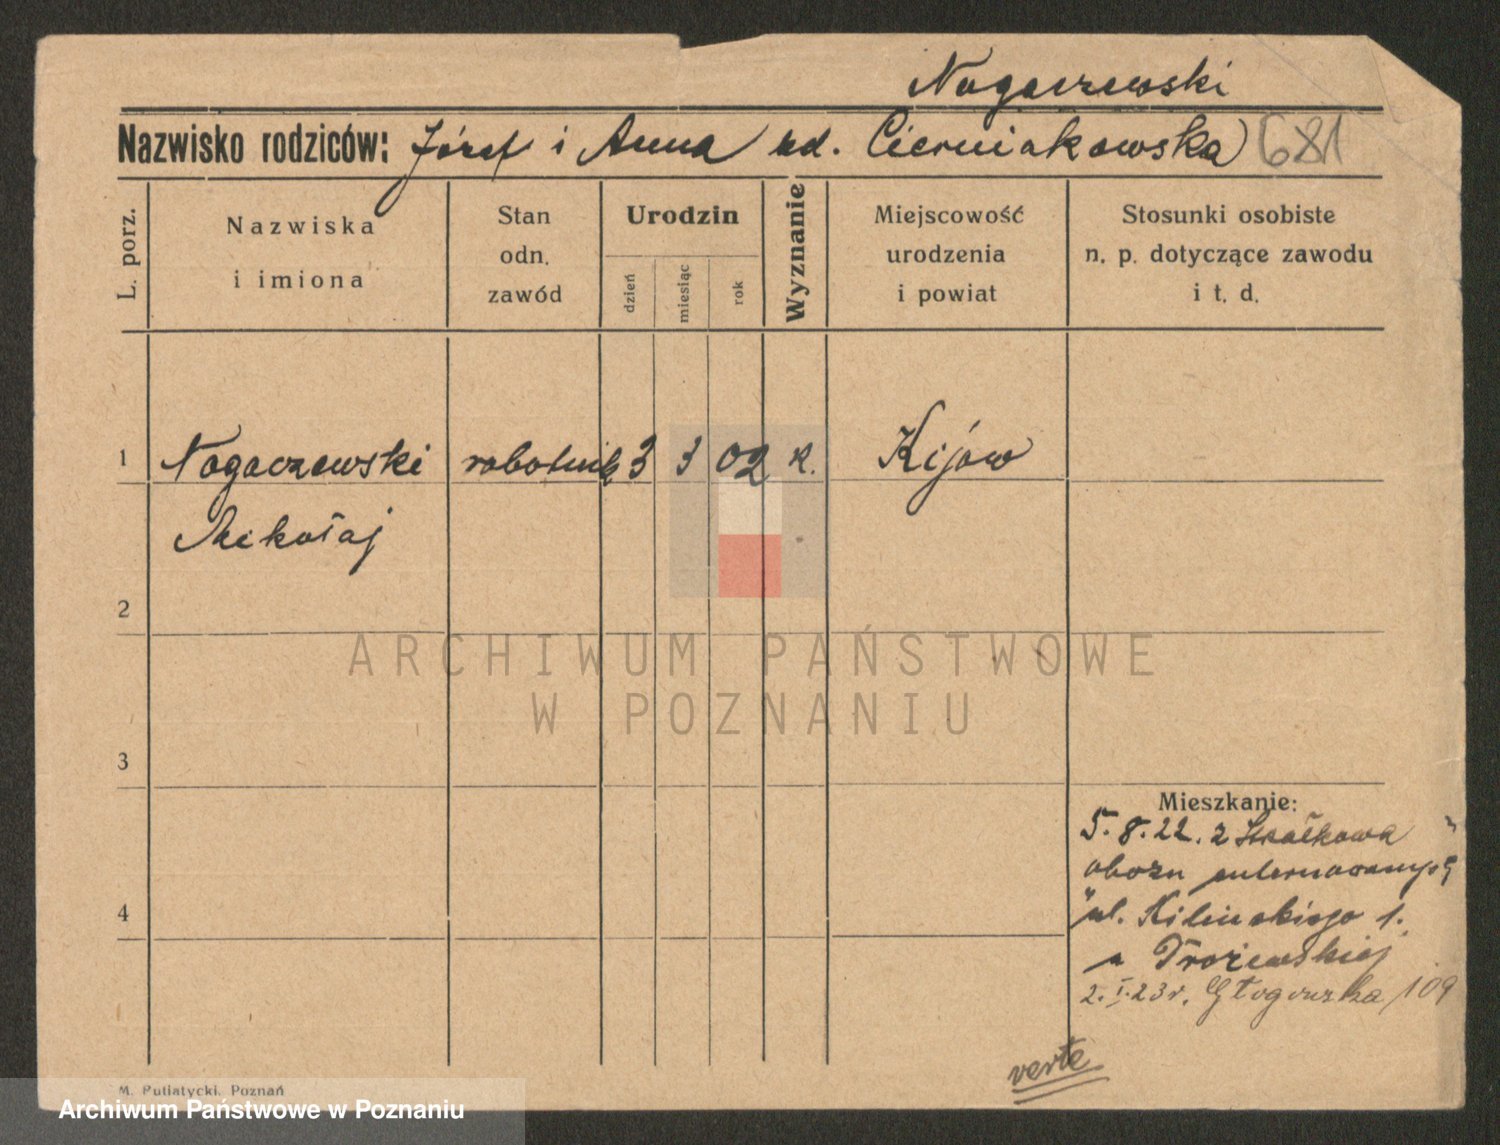 Nogaczewski
Nazwisko rodziców: Józef i Anna zd. Cierniakowska 681
L. porz.
Nazwiska
i imiona
Stan
odn.
zawód
Urodzin
dzień
miesiąc
rok
Wyznanie
Miejscowość
urodzenia
i powiat
Stosunki osobiste
n. p. dotyczące zawodu
i t. d.
1 Nogaczewski robotnik 3 3 02 k. Kijów
Mikołaj
2
ARCHIWUM PAŃSTWOWE
W POZNANIU
3
Mieszkanie:
5. 8. 22. z Strałkowa
obozu internowanych
4
ul. Kilińskiego 1.
u Trojewskiej
2. I. 23 r. Głogowska 109
verte
M. Putiatycki, Poznań
Archiwum Państwowe w Poznaniu